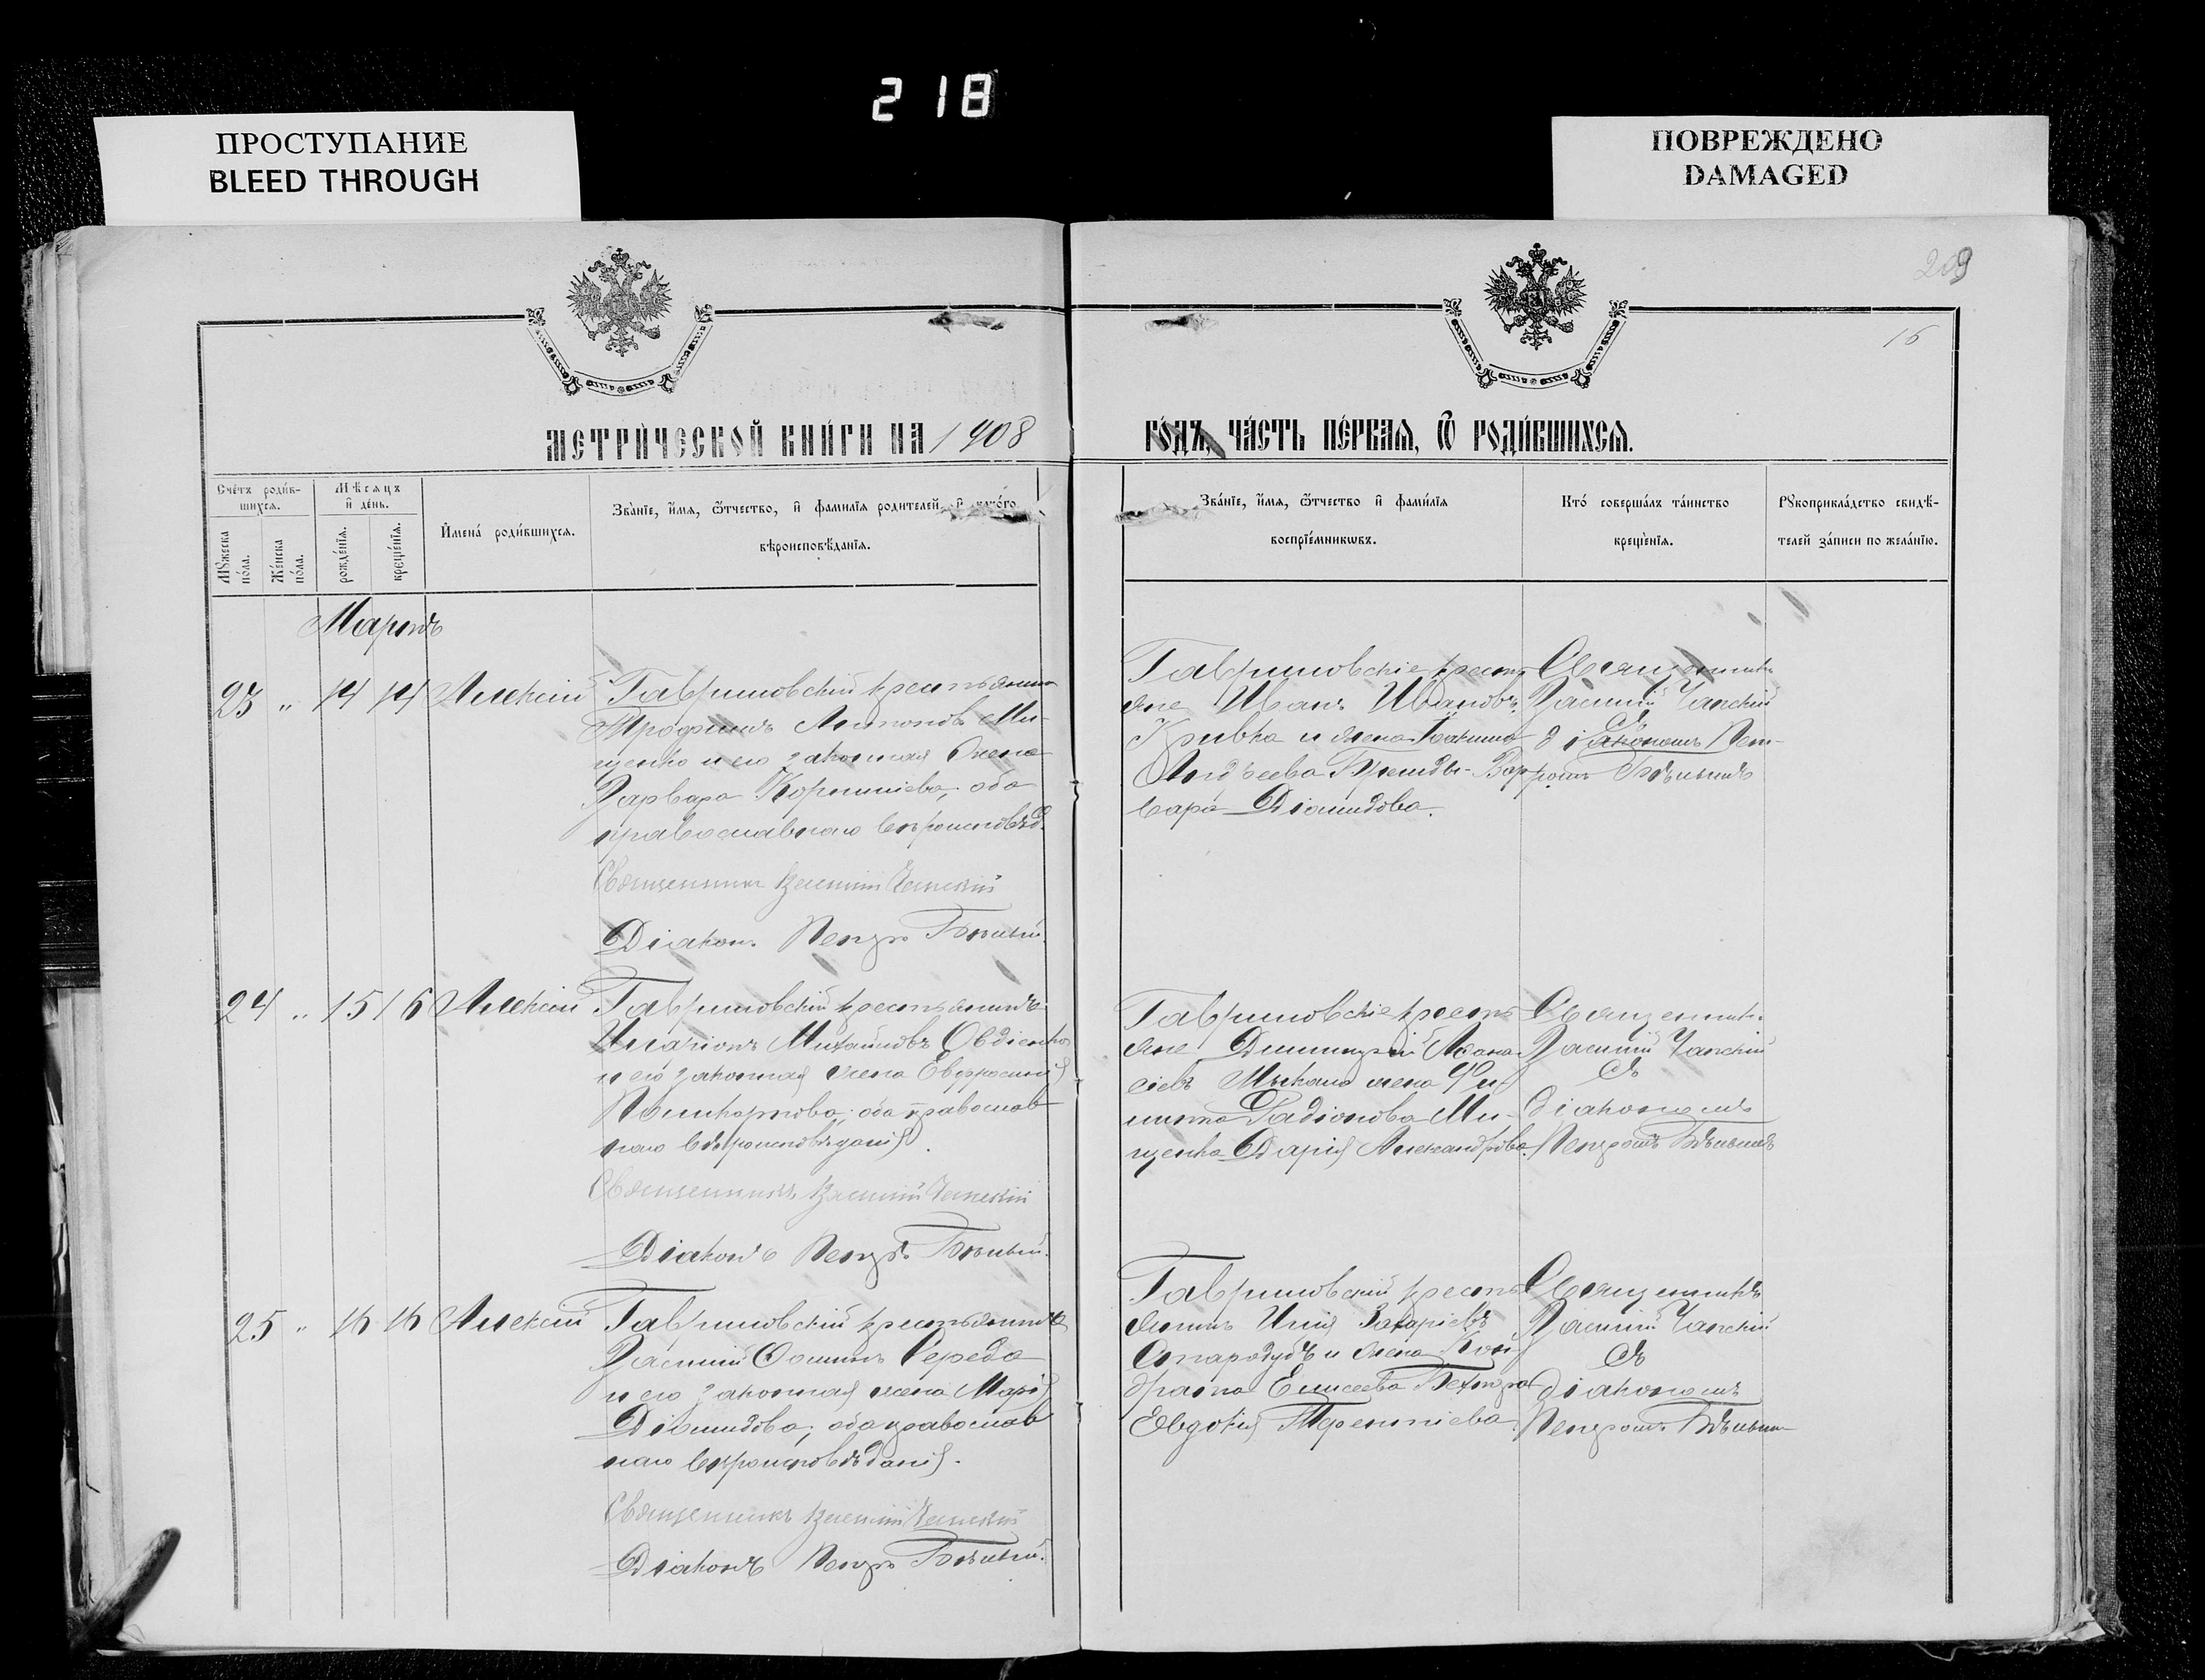 218
ПРОСТУПАНИЕ
BLEED THROUGH
ПОВРЕЖДЕНО
DAMAGED
209
16
МЕТРИ́ЧЕСКОЙ КНИ́ГИ НА 1908
ГО́ДЪ, ЧА́СТЬ ПЕ́РВАЯ, Ѿ РОДИ́ВШИХСЯ.
Счётъ роди́в-
шихся.
Мꙋ́жеска по́ла.
Же́нска по́ла.
Мѣсяцъ
и҆ де́нь.
рожде́нїя.
креще́нїя.
И҆мена́ роди́вшихся.
Зва́нїе, и҆́мя, ѻ҆́тчество, и҆ фами́лїя родителей, и҆ како́го
вѣроисповѣ́данїя.
Зва́нїе, и҆́мя, ѻ҆́тчество и҆ фами́лїя
воспрїе́мникѡвъ.
Кто́ соверша́лъ та́инство
креще́нїя.
Рꙋкоприкла́дство свидѣ́-
телей за́писи по жела́нїю.
Мартъ
23 " 14 14 Алексій
Гавришовскій крестьянинъ
Трофимъ Антоновъ Ми-
щенко и его законная жена
Варвара Корниліева, оба
православнаго вѣроисповѣд.
Священникъ Василій Чапскій
Діаконъ Петръ Бѣлый.
Гавришовскіе кресть-
яне Иванъ Ивановъ
Кривка и жена Іоакима
Андреева Вар-
вара Діомидова.
Священникъ
Василій Чапскій
съ
діакономъ Пет-
ромъ Бѣлымъ
24 " 15 16 Алексій
Гавришовскій крестьянинъ
Иларіонъ Михайловъ Овдіенко
и его законная жена Евфросинія
Поликарпова, оба православ
наго вѣроисповѣданія.
Священникъ Василій Чапскій
Діаконъ Петръ Бѣлый.
Гавришовскіе кресть
яне Димитрій Аѳана
сіевъ жена Фи
липпа Радіонова Ми-
щенка Дарія Александрова.
Священникъ
Василій Чапскій
съ
діакономъ
Петромъ Бѣлымъ
25 " 16 16 Алексій
Гавришовскій крестьянинъ
Василій Ѳоминъ Середа
и его законная жена Марія
Діомидова, оба православ
наго вѣроисповѣданія.
Священникъ Василій Чапскій
Діаконъ Петръ Бѣлый.
Гавришовскій кресть
янинъ Илія Захаріевъ
Стародубъ и жена Кон
драта Елисеева
Евдокія Терентіева
Священникъ
Василій Чапскій
съ
діакономъ
Петромъ Бѣлымъ